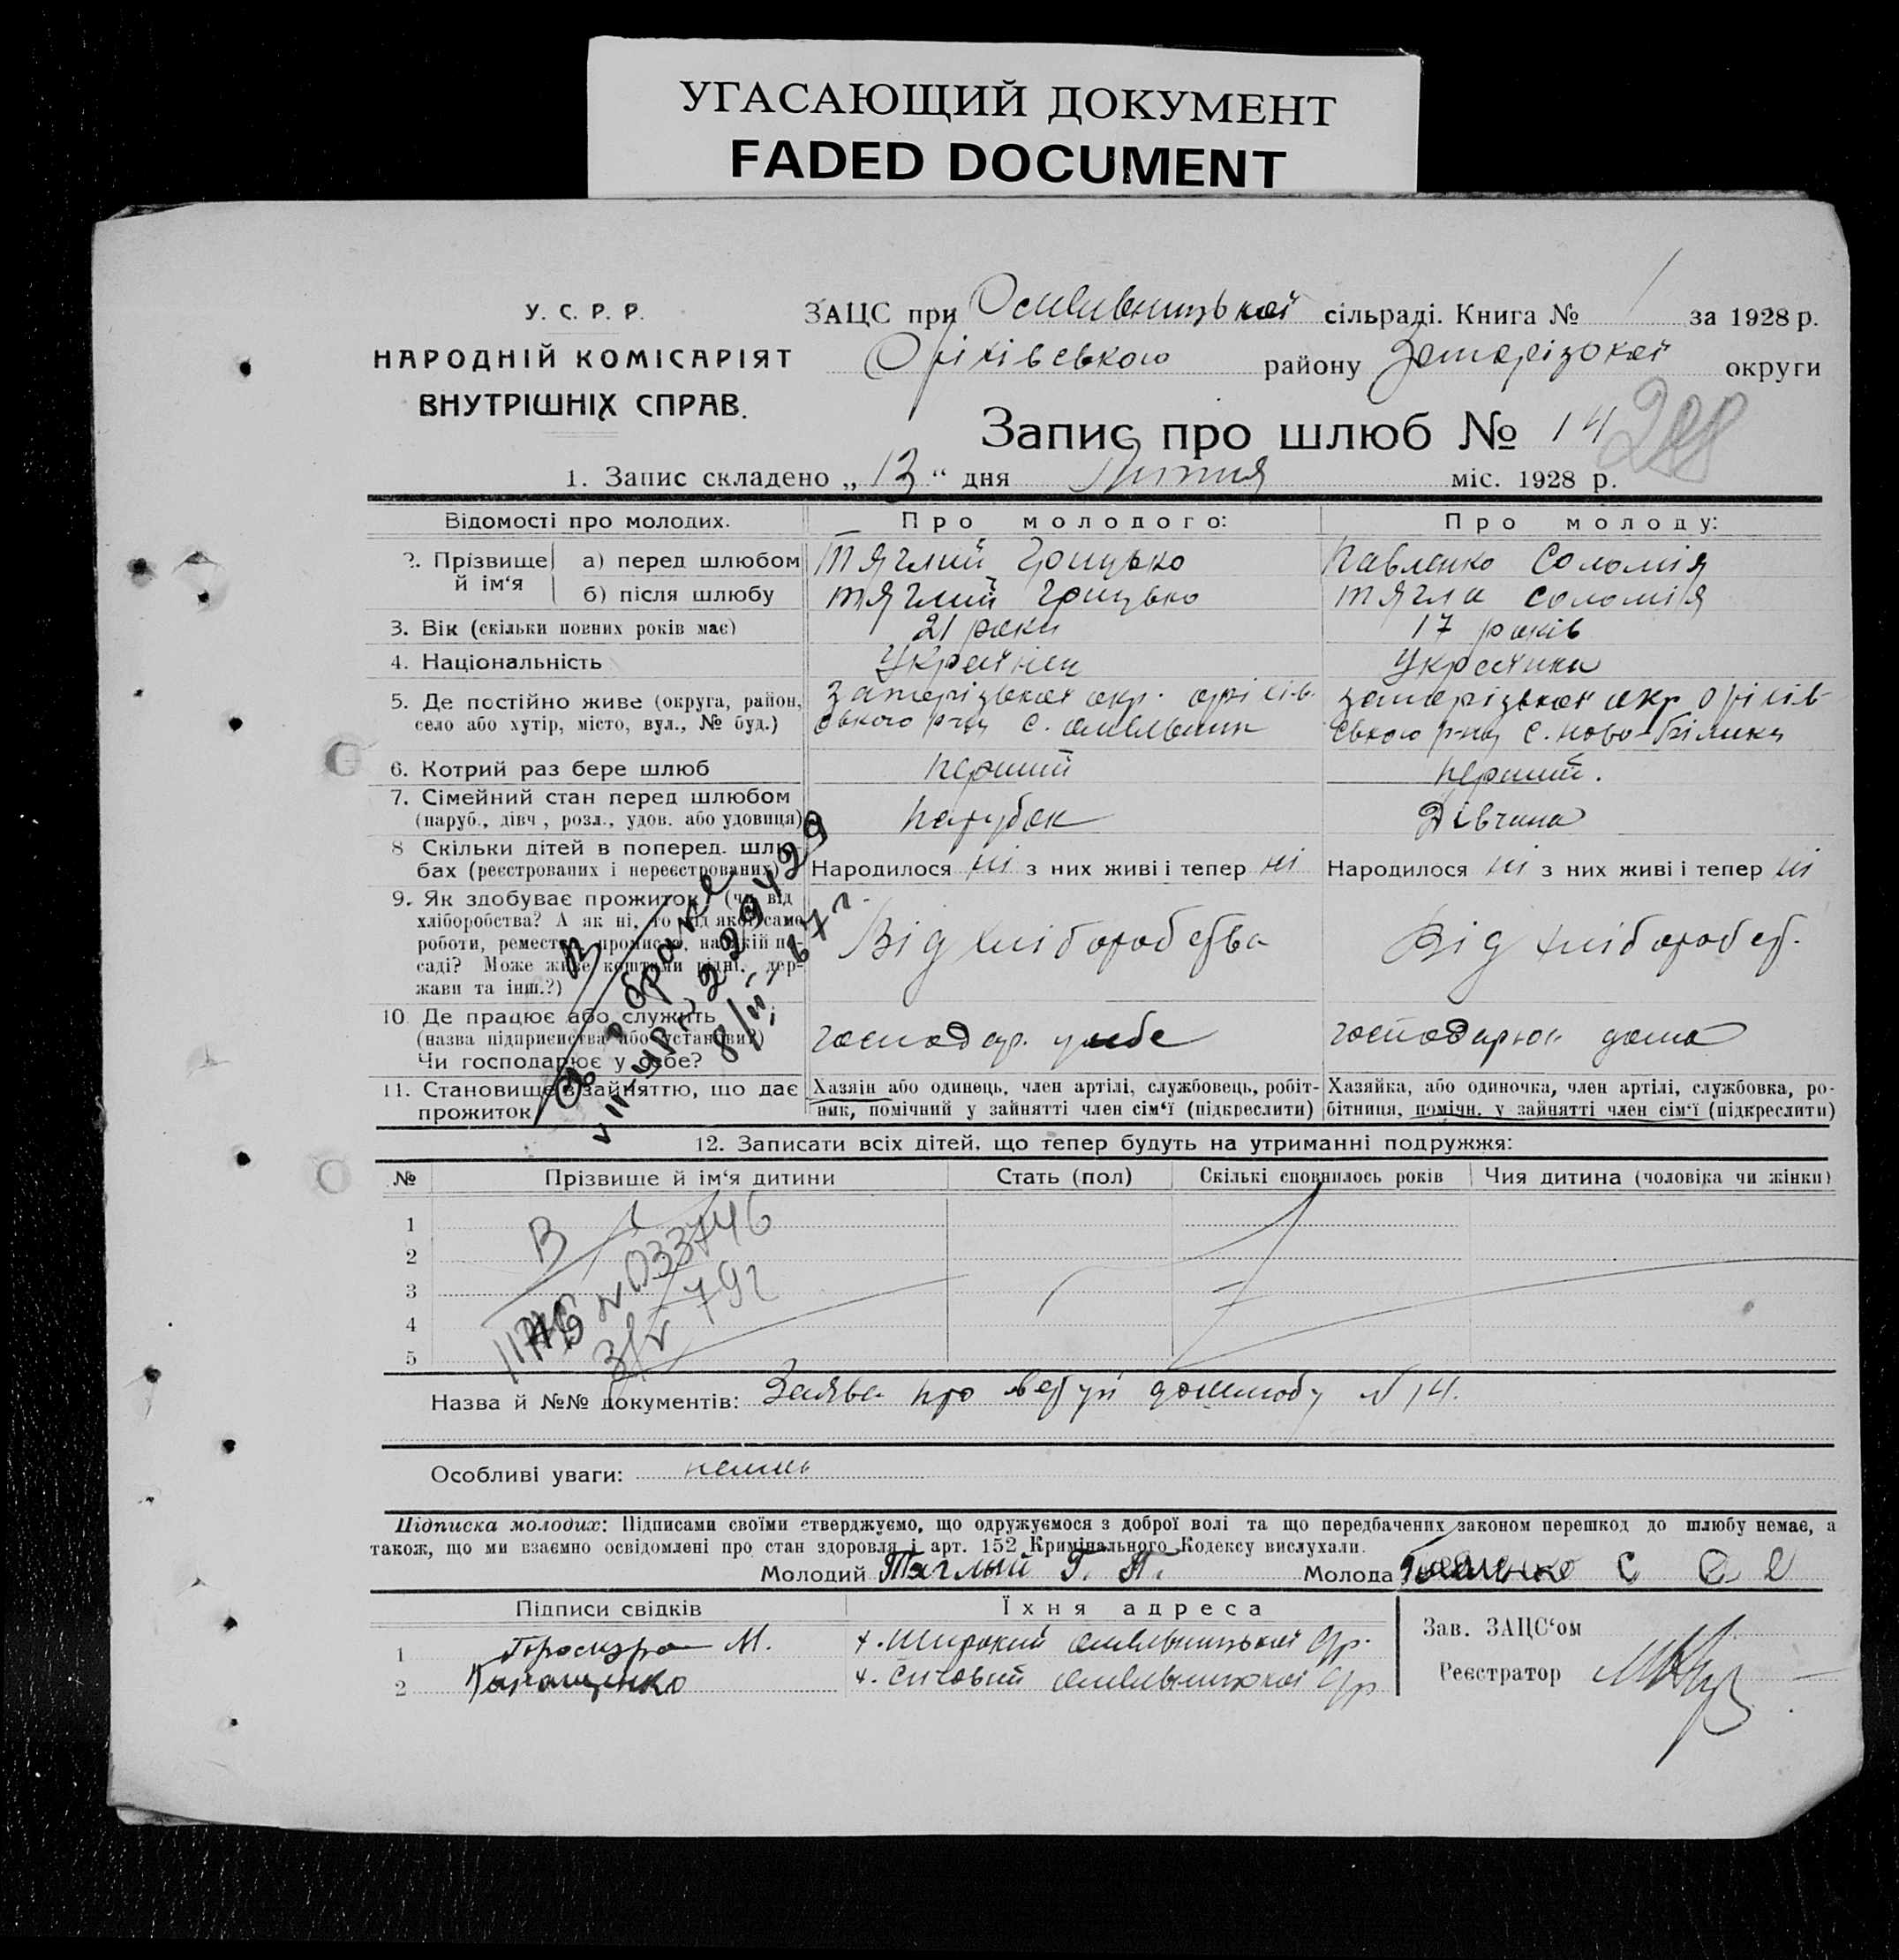 УГАСАЮЩИЙ ДОКУМЕНТ
FADED DOCUMENT
У. С. Р. Р.
НАРОДНІЙ КОМІСАРІЯТ
ВНУТРІШНІХ СПРАВ.
ЗАЦС при Омельницької сільраді. Книга № 1 за 1928 р.
Оріхівського району Запорізької округи
Запис про шлюб № 14
1. Запис складено „ 13 “ дня Липня міс. 1928 р.
Відомості про молодих. Про молодого: Про молоду:
2. Прізвище й ім‘я а) перед шлюбом Тяглий Грицько Павленко Соломія
б) після шлюбу тяглий грицько тягла соломія
3. Вік (скільки повних років має) 21 роки 17 років
4. Національність Українец Українка
5. Де постійно живе (округа, район, запорізької окр. оріхів- запорізької окр оріхів-
село або хутір, місто, вул., № буд.) ського р-ну с. омельник ського р-ну с. ново-
6. Котрий раз бере шлюб перший перший.
7. Сімейний стан перед шлюбом
(паруб., дівч., розл., удов. або удовиця) парубок Дівчина
8 Скільки дітей в поперед. шлю-
бах (реєстрованих і нереєстрованих) Народилося ні з них живі і тепер ні Народилося ні з них живі і тепер ні
9. Як здобуває прожиток? (чи від
хліборобства? А як ні, то від якої саме
роботи, ремества, промисла, на якій по-
саді? Може живе коштами рідні, дер-
жави та інш.?)
Від хліборобства Від хлібороб
10. Де працює або служить
(назва підприємства або установи?)
Чи господарює у себе?
господар. у себе господарює дома
11. Становище в зайняттю, що дає Хазяїн або одинець, член артілі, службовець, робіт- Хазяйка, або одиночка, член артілі, службовка, ро-
прожиток ник, помічний у зайнятті член сім‘ї (підкреслити) бітниця, помічн. у зайнятті член сім‘ї (підкреслити)
12. Записати всіх дітей, що тепер будуть на утриманні подружжя:
№ Прізвище й ім‘я дитини Стать (пол) Скількі сповнилось років Чия дитина (чоловіка чи жінки)
1
2
3
4
5
N 033746
Назва й №№ документів: Заява про вступ до шлюбу N 14.
Особливі уваги: немає
Підписка молодих: Підписами своїми стверджуємо, що одружуємося з доброї волі та що передбачених законом перешкод до шлюбу немає, а
також, що ми взаємно освідомлені про стан здоровля і арт. 152 Кримінального Кодексу вислухали.
Молодий Тяглый Г. П. Молода
Підписи свідків Їхня адреса Зав. ЗАЦС‘ом
1 М. х. Широкий омельницької
2 х. омельницької
Реєстратор